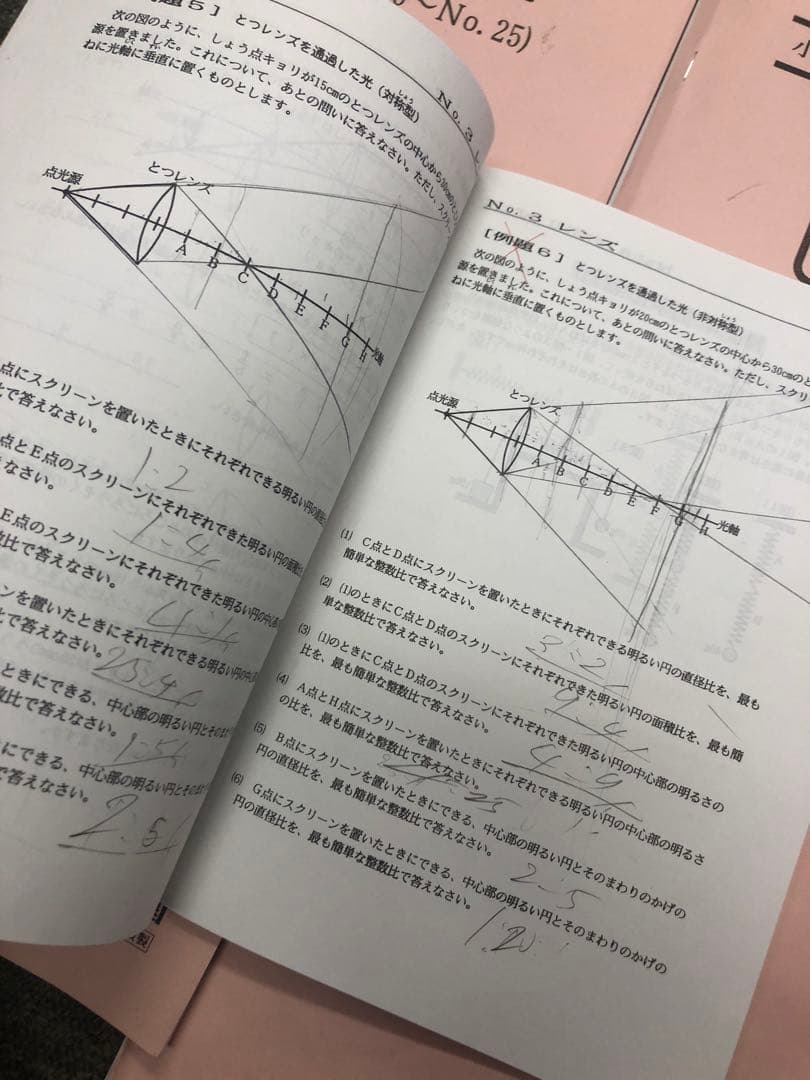 ～No. 25)
小
題5］ とつレンズを通過した光（対称型）
しょう
次の図のように、しょう点キョリが15cmのとつレンズの中心から
源を置きました。これについて、あとの問いに答えなさい。ただし、
ねに光軸に垂直に置くものとします。
点光源
とつレンズ
A B C D E F G H
光軸
点にスクリーンを置いたときにそれぞれできる明るい円の直径
比で答えなさい。
1:2
点とE点のスクリーンにそれぞれできた明るい円の面積
なさい。
1:4
E点のスクリーンにそれぞれできた明るい円の中心
数比で答えなさい。
4:1
ンを置いたときにそれぞれできる明るい円の中
数比で答えなさい。
25:4
ときにできる、中心部の明るい円とそのま
整数比で答えなさい。
1:5
にできる、中心部の明るい円とそのまわ
答えなさい。
2:5
No. 3 レンズ
［例題6］ とつレンズを通過した光（非対称型）
しょう
次の図のように、しょう点キョリが20cmのとつレンズの中心から30cmのと
源を置きました。これについて、あとの問いに答えなさい。ただし、スクリ
ねに光軸に垂直に置くものとします。
点光源
とつレンズ
A B C D E F G H
光軸
(1) C点とD点にスクリーンを置いたときにそれぞれできる明るい円の直径比を、最も
簡単な整数比で答えなさい。
3:2
(2) (1)のときにC点とD点のスクリーンにそれぞれできた明るい円の面積比を、最も簡
単な整数比で答えなさい。
9:4
(3) (1)のときにC点とD点のスクリーンにそれぞれできた明るい円の中心部の明るさの
比を、最も簡単な整数比で答えなさい。
4:9
(4) A点とH点にスクリーンを置いたときにそれぞれできる明るい円の中心部の明るさ
の比を、最も簡単な整数比で答えなさい。
25
(5) B点にスクリーンを置いたときにできる、中心部の明るい円とそのまわりのかげの
円の直径比を、最も簡単な整数比で答えなさい。
2:5
(6) G点にスクリーンを置いたときにできる、中心部の明るい円とそのまわりのかげの
円の直径比を、最も簡単な整数比で答えなさい。
1:20
製